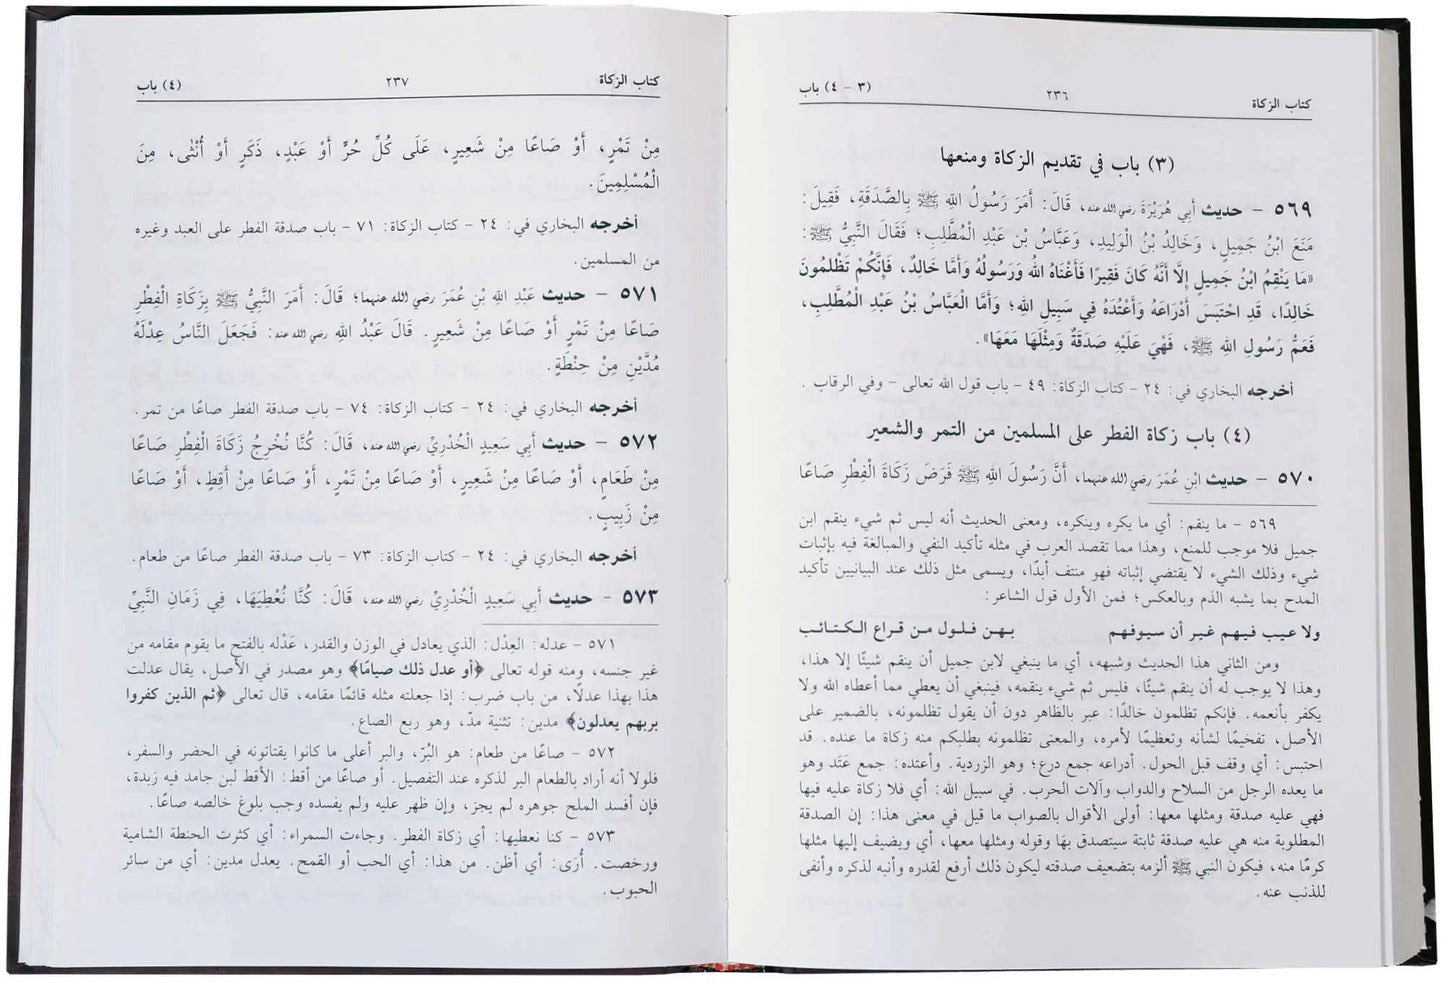 كتاب الزكاة ٢٣٦ (٣ - ٤) باب
(٣) باب في تقديم الزكاة ومنعها
٥٦٩ - حديث أَبِي هُرَيْرَةَ رضي الله عنه، قَالَ: أَمَرَ رَسُولُ اللهِ ﷺ بِالصَّدَقَةِ، فَقِيلَ:
مَنَعَ ابْنُ جَمِيلٍ، وَخَالِدُ بْنُ الْوَلِيدِ، وَعَبَّاسُ بْنُ عَبْدِ الْمُطَّلِبِ؛ فَقَالَ النَّبِيُّ ﷺ:
«مَا يَنْقِمُ ابْنُ جَمِيلٍ إِلَّا أَنَّهُ كَانَ فَقِيرًا فَأَغْنَاهُ اللهُ وَرَسُولُهُ وَأَمَّا خَالِدٌ، فَإِنَّكُمْ تَظْلِمُونَ
خَالِدًا، قَدِ احْتَبَسَ أَدْرَاعَهُ وَأَعْتُدَهُ فِي سَبِيلِ اللهِ؛ وَأَمَّا الْعَبَّاسُ بْنُ عَبْدِ الْمُطَّلِبِ،
فَعَمُّ رَسُولِ اللهِ ﷺ، فَهْيَ عَلَيْهِ صَدَقَةٌ وَمِثْلُهَا مَعَهَا».
أخرجه البخاري في: ٢٤ - كتاب الزكاة: ٤٩ - باب قول الله تعالى - وفي الرقاب .
(٤) باب زكاة الفطر على المسلمين من التمر والشعير
٥٧٠ - حديث ابْنِ عُمَرَ رضي الله عنهما، أَنَّ رَسُولَ اللهِ ﷺ فَرَضَ زَكَاةَ الْفِطْرِ صَاعًا
٥٦٩ - ما ينقم: أي ما يكره وينكره، ومعنى الحديث أنه ليس ثم شيء ينقم ابن
جميل فلا موجب للمنع، وهذا مما تقصد العرب في مثله تأكيد النفي والمبالغة فيه بإثبات
شيء وذلك الشيء لا يقتضي إثباته فهو منتف أبدًا، ويسمى مثل ذلك عند البيانيين تأكيد
المدح بما يشبه الذم وبالعكس؛ فمن الأول قول الشاعر:
ولا عيب فيهم غير أن سيوفهم بهن فلول من قراع الكتائب
ومن الثاني هذا الحديث وشبهه، أي ما ينبغي لابن جميل أن ينقم شيئًا إلا هذا،
وهذا لا يوجب له أن ينقم شيئًا، فليس ثم شيء ينقمه، فينبغي أن يعطي مما أعطاه الله ولا
يكفر بأنعمه. فإنكم تظلمون خالدًا: عبر بالظاهر دون أن يقول تظلمونه، بالضمير على
الأصل، تفخيمًا لشأنه وتعظيمًا لأمره، والمعنى تظلمونه بطلبكم منه زكاة ما عنده. قد
احتبس: أي وقف قبل الحول. أدراعه جمع درع؛ وهو الزردية. وأعتده: جمع عَتَد وهو
ما يعده الرجل من السلاح والدواب وآلات الحرب. في سبيل الله: أي فلا زكاة عليه فيها
فهي عليه صدقة ومثلها معها: أولى الأقوال بالصواب ما قيل في معنى هذا: إن الصدقة
المطلوبة منه هي عليه صدقة ثابتة سيتصدق بها وقوله ومثلها معها، أي ويضيف إليها مثلها
كرمًا منه، فيكون النبي ﷺ ألزمه بتضعيف صدقته ليكون ذلك أرفع لقدره وأنبه لذكره وأنفى
للذنب عنه.
كتاب الزكاة ٢٣٧ (٤) باب
مِنْ تَمْرٍ، أَوْ صَاعًا مِنْ شَعِيرٍ، عَلَى كُلِّ حُرٍّ أَوْ عَبْدٍ، ذَكَرٍ أَوْ أُنْثَى، مِنَ
الْمُسْلِمِينَ.
أخرجه البخاري في: ٢٤ - كتاب الزكاة: ٧١ - باب صدقة الفطر على العبد وغيره
من المسلمين.
٥٧١ - حديث عَبْدِ اللهِ بْنِ عُمَرَ رضي الله عنهما؛ قَالَ: أَمَرَ النَّبِيُّ ﷺ بِزَكَاةِ الْفِطْرِ
صَاعًا مِنْ تَمْرٍ أَوْ صَاعًا مِنْ شَعِيرٍ. قَالَ عَبْدُ اللهِ رضي الله عنه: فَجَعَلَ النَّاسُ عِدْلَهُ
مُدَّيْنِ مِنْ حِنْطَةٍ.
أخرجه البخاري في: ٢٤ - كتاب الزكاة: ٧٤ - باب صدقة الفطر صاعًا من تمر.
٥٧٢ - حديث أَبِي سَعِيدٍ الْخُدْرِيِّ رضي الله عنه، قَالَ: كُنَّا نُخْرِجُ زَكَاةَ الْفِطْرِ صَاعًا
مِنْ طَعَامٍ، أَوْ صَاعًا مِنْ شَعِيرٍ، أَوْ صَاعًا مِنْ تَمْرٍ، أَوْ صَاعًا مِنْ أَقِطٍ، أَوْ صَاعًا
مِنْ زَبِيبٍ.
أخرجه البخاري في: ٢٤ - كتاب الزكاة: ٧٣ - باب صدقة الفطر صاعًا من طعام.
٥٧٣ - حديث أَبِي سَعِيدٍ الْخُدْرِيِّ رضي الله عنه، قَالَ: كُنَّا نُعْطِيهَا، فِي زَمَانِ النَّبِيِّ
٥٧١ - عدله: العِدْل: الذي يعادل في الوزن والقدر، عَدْله بالفتح ما يقوم مقامه من
غير جنسه، ومنه قوله تعالى ﴿أو عدل ذلك صيامًا﴾ وهو مصدر في الأصل، يقال عدلت
هذا بهذا عدلًا، من باب ضرب: إذا جعلته مثله قائمًا مقامه، قال تعالى ﴿ثم الذين كفروا
بربهم يعدلون﴾ مدين: تثنية مدّ، وهو ربع الصاع.
٥٧٢ - صاعًا من طعام: هو البُرّ، والبر أعلى ما كانوا يقتاتونه في الحضر والسفر،
فلولا أنه أراد بالطعام البر لذكره عند التفصيل. أو صاعًا من أقط: الأقط لبن جامد فيه زبدة،
فإن أفسد الملح جوهره لم يجز، وإن ظهر عليه ولم يفسده وجب بلوغ خالصه صاعًا.
٥٧٣ - كنا نعطيها: أي زكاة الفطر. وجاءت السمراء: أي كثرت الحنطة الشامية
ورخصت. أُرَى: أي أظن. من هذا: أي الحب أو القمح. يعدل مدين: أي من سائر
الحبوب.